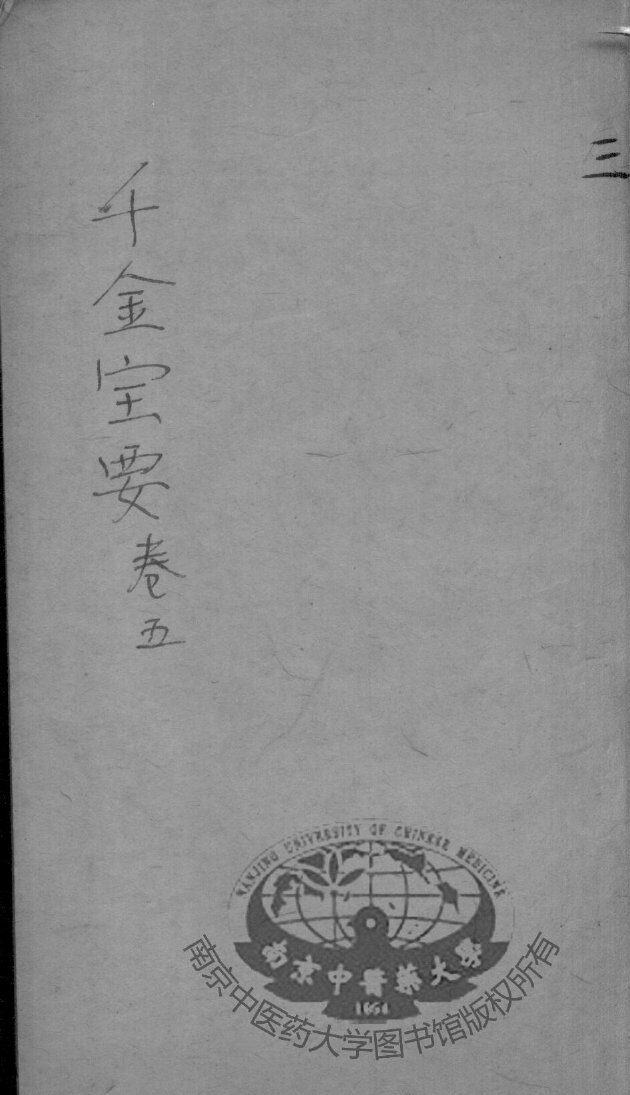 三
千金宝要卷五
NANJING UNIVERSITY OF CHINESE MEDICINE
南京中醫藥大學
1954
南京中医药大学图书馆版权所有